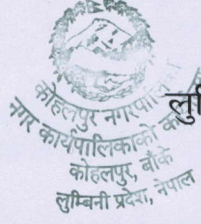 कोहलपुर नगरपालि
नगर कार्यपालिकाको का
कोहलपुर, बाँके
लुम्बिनी प्रदेश, नेपाल
लु